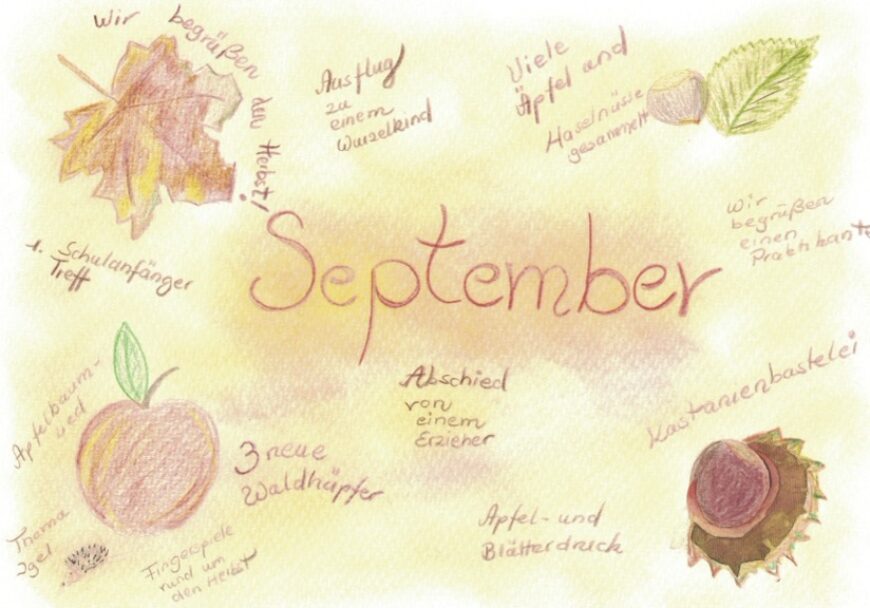 Wir begrüßen den Herbst!
Ausflug
zu
einem
Wurzelkind
Viele
Äpfel und
Haselnüsse
gesammelt
Wir
begrüßen
einen
Praktikant
1. Schulanfänger
Treff
September
Apfelbaum-
lied
Abschied
von
einem
Erzieher
Kastanienbastelei
3 neue
Waldhüpfer
Apfel- und
Blätterdruck
Thema
Igel
Fingerspiele
rund um
den Herbst